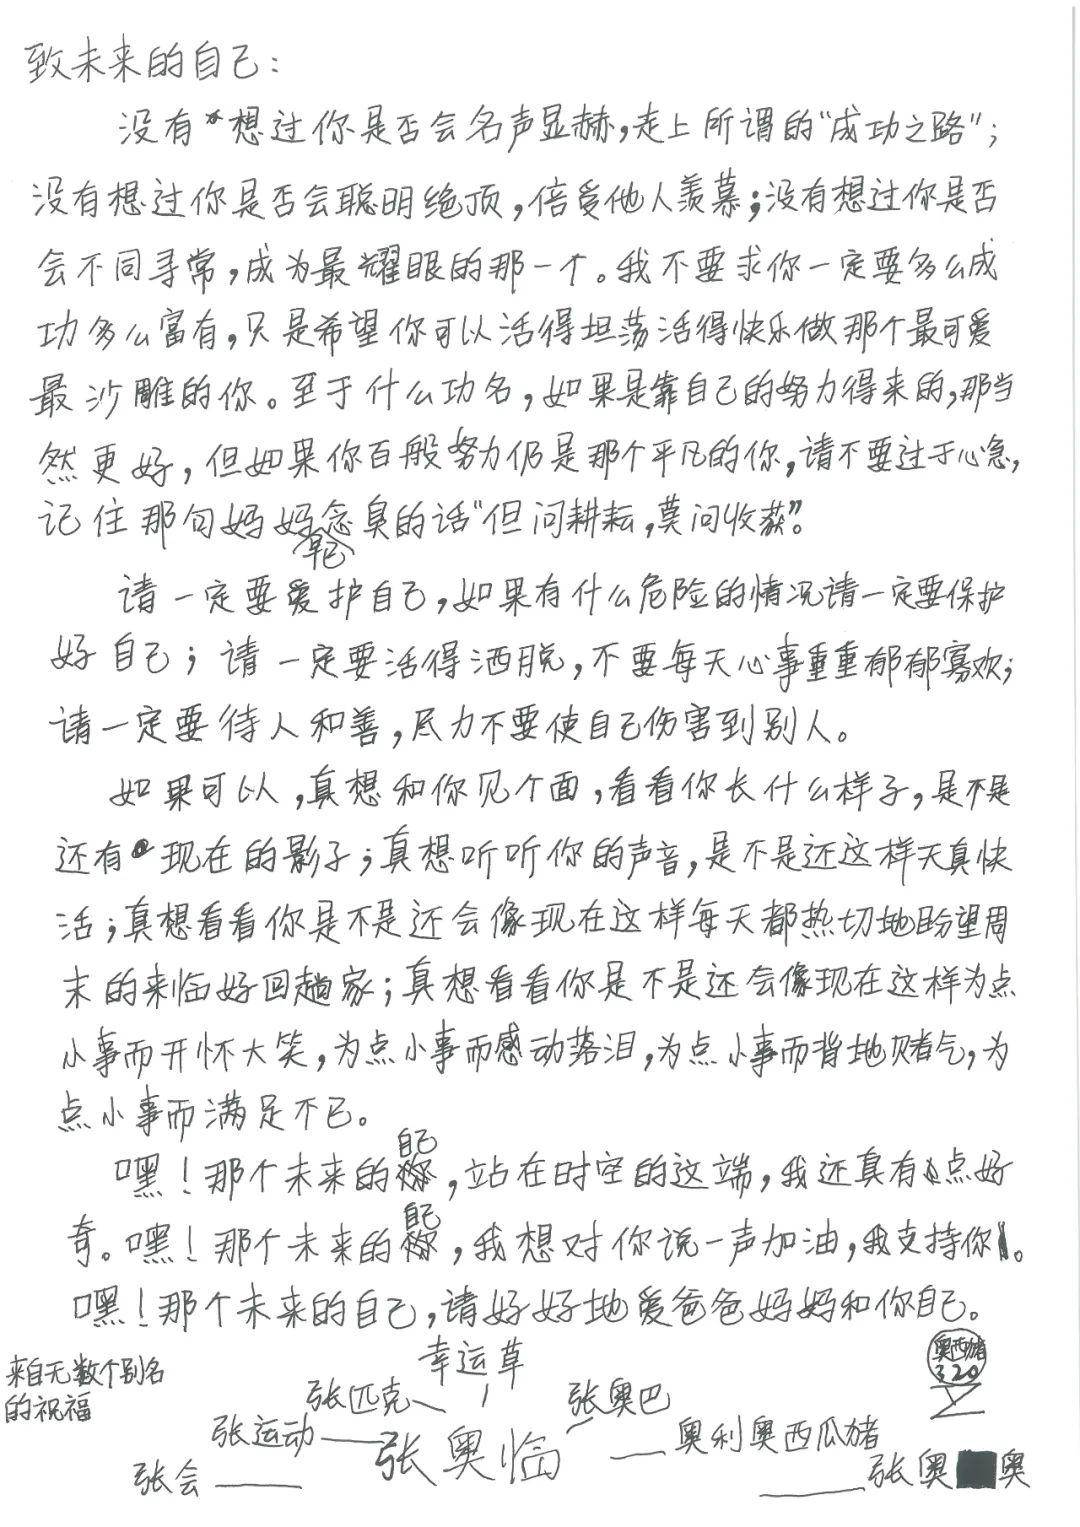 致未来的自己：
没有想过你是否会名声显赫，走上所谓的“成功之路”；
没有想过你是否会聪明绝顶，倍受他人羡慕；没有想过你是否
会不同寻常，成为最耀眼的那一个。我不要求你一定要多么成
功多么富有，只是希望你可以活得坦荡活得快乐做那个最可爱
最沙雕的你。至于什么功名，如果是靠自己的努力得来的，那当
然更好，但如果你百般努力仍是那个平凡的你，请不要过于心急，
记住那句妈妈早已念臭的话“但问耕耘，莫问收获”。
请一定要爱护自己，如果有什么危险的情况请一定要保护
好自己；请一定要活得洒脱，不要每天心事重重郁郁寡欢；
请一定要待人和善，尽力不要使自己伤害到别人。
如果可以，真想和你见个面，看看你长什么样子，是不是
还有现在的影子；真想听听你的声音，是不是还这样天真快
活；真想看看你是不是还会像现在这样每天都热切地盼望周
末的来临好回趟家；真想看看你是不是还会像现在这样为点
小事而开怀大笑，为点小事而感动落泪，为点小事而背地赌气，为
点小事而满足不已。
嘿！那个未来的自己，站在时空的这端，我还真有点好
奇。嘿！那个未来的自己，我想对你说一声加油，我支持你。
嘿！那个未来的自己，请好好地爱爸爸妈妈和你自己。
来自无数个别名
的祝福
幸运草
奥西猪
320
张匹克
张奥巴
张运动
张奥临
奥利奥西瓜猪
张会
张奥 奥